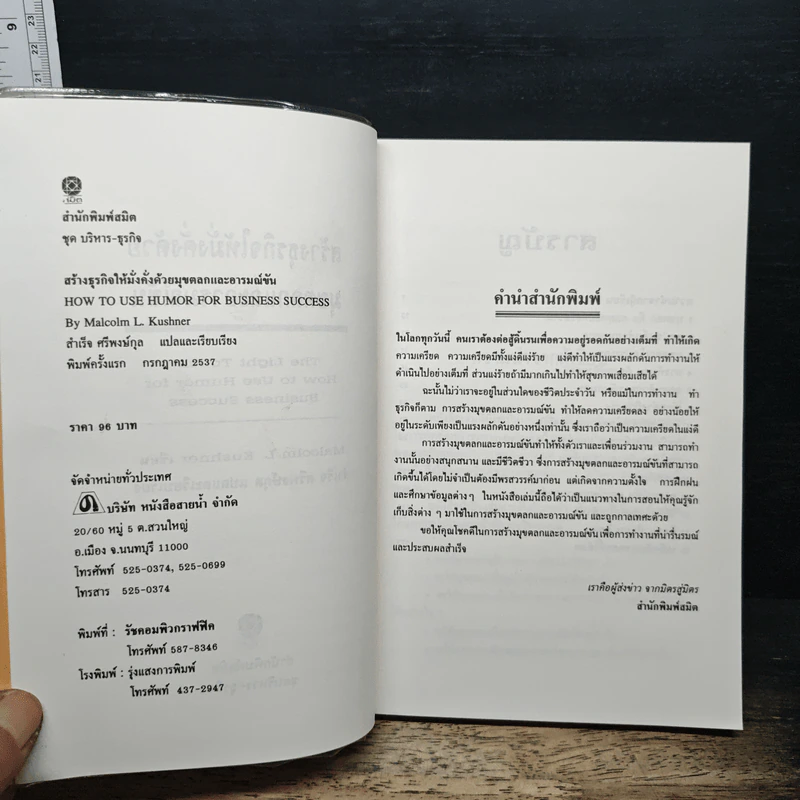 9
23
22
21
สมิต
สำนักพิมพ์สมิต
ชุด บริหาร-ธุรกิจ
สร้างธุรกิจให้มั่งคั่งด้วยมุขตลกและอารมณ์ขัน
HOW TO USE HUMOR FOR BUSINESS SUCCESS
By Malcolm L. Kushner
สำเร็จ ศรีพงษ์กุล แปลและเรียบเรียง
พิมพ์ครั้งแรก กรกฎาคม 2537
ราคา 96 บาท
จัดจำหน่ายทั่วประเทศ
บริษัท หนังสือสายน้ำ จำกัด
20/60 หมู่ 5 ต.สวนใหญ่
อ.เมือง จ.นนทบุรี 11000
โทรศัพท์ 525-0374, 525-0699
โทรสาร 525-0374
พิมพ์ที่ : รัชคอมพิวกราฟฟิค
โทรศัพท์ 587-8346
โรงพิมพ์ : รุ่งแสงการพิมพ์
โทรศัพท์ 437-2947
คำนำสำนักพิมพ์
ในโลกทุกวันนี้ คนเราต้องต่อสู้ดิ้นรนเพื่อความอยู่รอดกันอย่างเต็มที่ ทำให้เกิด
ความเครียด ความเครียดมีทั้งแง่ดีแง่ร้าย แง่ดีทำให้เป็นแรงผลักดันการทำงานให้
ดำเนินไปอย่างเต็มที่ ส่วนแง่ร้ายถ้ามีมากเกินไปทำให้สุขภาพเสื่อมเสียได้
ฉะนั้นไม่ว่าเราจะอยู่ในส่วนใดของชีวิตประจำวัน หรือแม้ในการทำงาน ทำ
ธุรกิจก็ตาม การสร้างมุขตลกและอารมณ์ขัน ทำให้ลดความเครียดลง อย่างน้อยให้
อยู่ในระดับเพียงเป็นแรงผลักดันอย่างหนึ่งเท่านั้น ซึ่งเราถือว่าเป็นความเครียดในแง่ดี
การสร้างมุขตลกและอารมณ์ขันทำให้ทั้งตัวเราและเพื่อนร่วมงาน สามารถทำ
งานนั้นอย่างสนุกสนาน และมีชีวิตชีวา ซึ่งการสร้างมุขตลกและอารมณ์ขันที่สามารถ
เกิดขึ้นได้โดยไม่จำเป็นต้องมีพรสวรรค์มาก่อน แต่เกิดจากความตั้งใจ การฝึกฝน
และศึกษาข้อมูลต่างๆ ในหนังสือเล่มนี้ถือได้ว่าเป็นแนวทางในการสอนให้คุณรู้จัก
เก็บสิ่งต่าง ๆ มาใช้ในการสร้างมุขตลกและอารมณ์ขัน และถูกกาลเทศะด้วย
ขอให้คุณโชคดีในการสร้างมุขตลกและอารมณ์ขัน เพื่อการทำงานที่น่ารื่นรมณ์
และประสบผลสำเร็จ
เราคือผู้ส่งข่าว จากมิตรสู่มิตร
สำนักพิมพ์สมิต